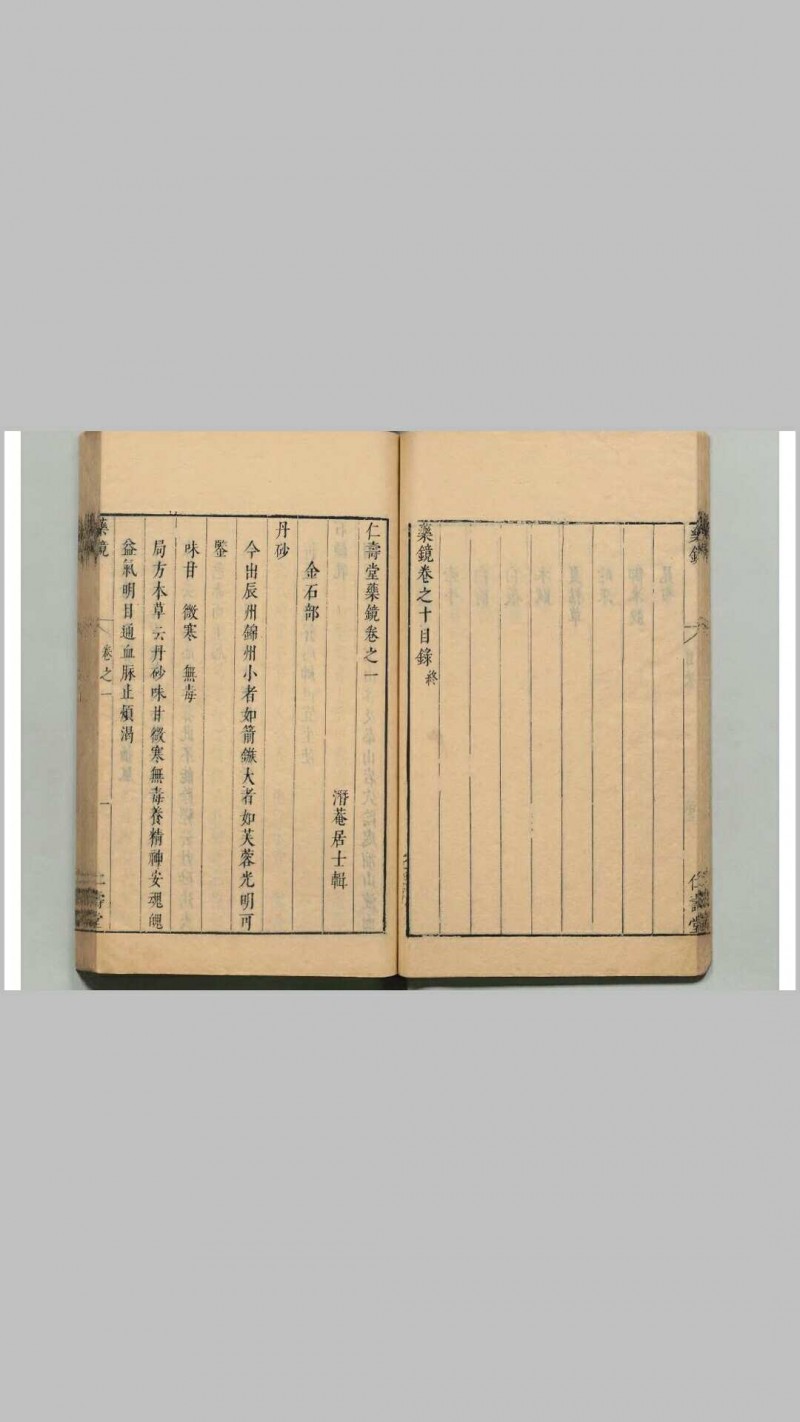 藥鏡
仁壽堂
藥鏡卷之十目錄終
仁壽堂藥鏡卷之一
潛菴居士輯
金石部
丹砂
今出辰州錦州小者如箭鏃大者如芙蓉光明可
鑒
味甘 微寒 無毒
局方本草云丹砂味甘微寒無毒養精神安魂魄
益氣明目通血脈止煩渴
藥鏡
卷之一
一
仁壽堂